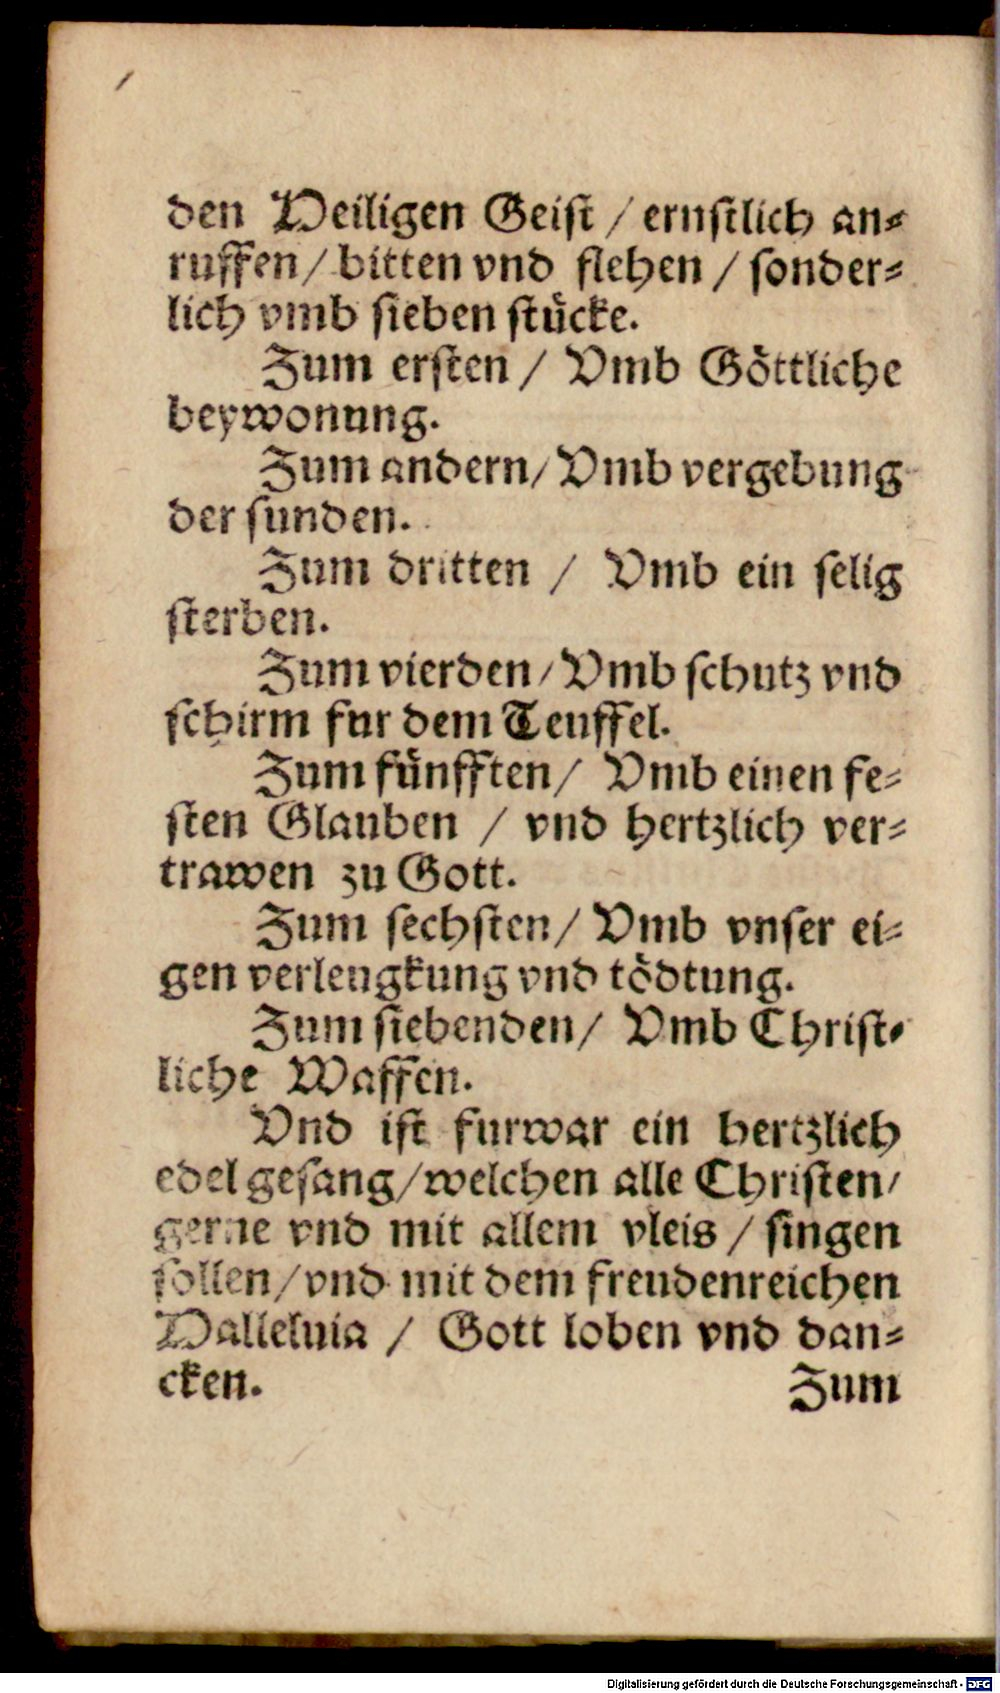 den Heiligen Geist / ernstlich an⸗
ruffen / bitten vnd flehen / sonder⸗
lich vmb sieben stücke.
Zum ersten / Vmb Göttliche
beywonung.
Zum andern / Vmb vergebung
der sunden.
Zum dritten / Vmb ein selig
sterben.
Zum vierden / Vmb schutz vnd
schirm fur dem Teuffel.
Zum fünfften / Vmb einen fe⸗
sten Glauben / vnd hertzlich ver⸗
trawen zu Gott.
Zum sechsten / Vmb vnser ei⸗
gen verleugkung vnd tödtung.
Zum siebenden / Vmb Christ⸗
liche Waffen.
Vnd ist furwar ein hertzlich
edel gesang / welchen alle Christen /
gerne vnd mit allem vleis / singen
sollen / vnd mit dem freudenreichen
Halleluia / Gott loben vnd dan⸗
cken. Zum
Digitalisierung gefördert durch die Deutsche Forschungsgemeinschaft - DFG